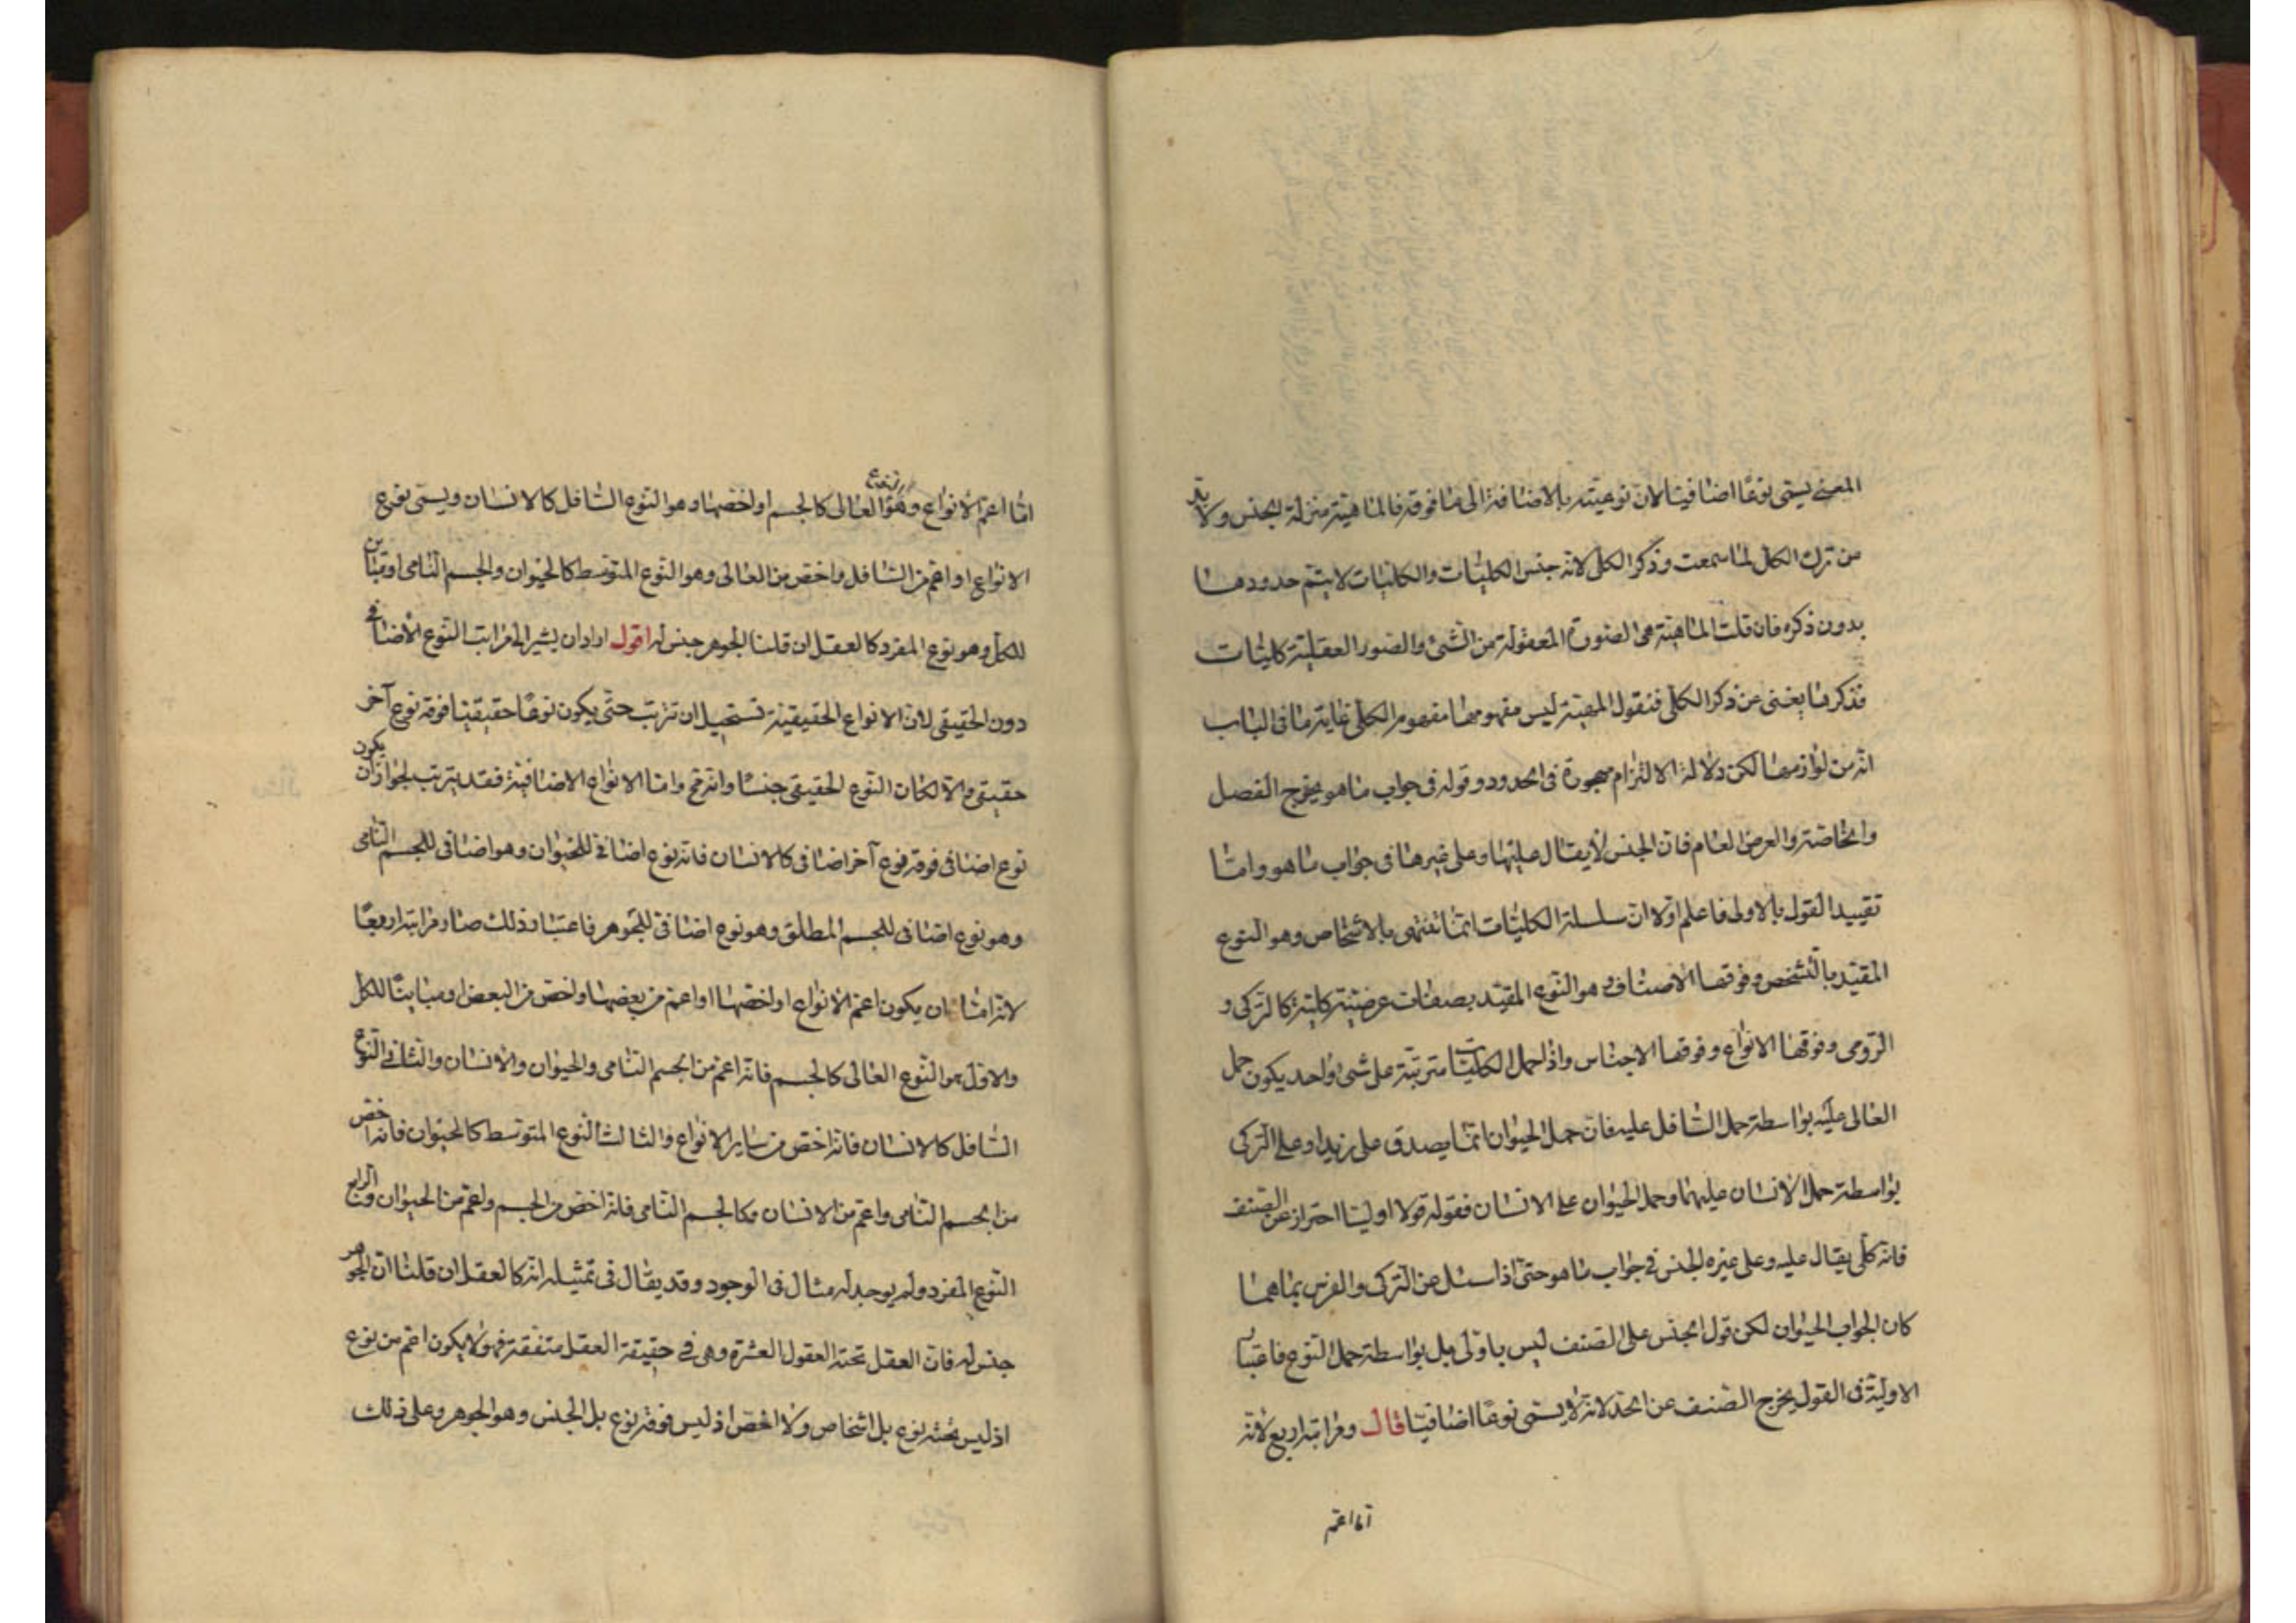 المعنى يسمى نوعًا اضافيا لان نوعيته بالاضافة الى ما فوقه فالماهية منزلة الجنس ولا بد
من ترك الكل لما سمعت وذكر الكلى لانه جنس الكليات والكليات لا يتم حدودها
بدون ذكره فان قلت الماهية هى الصورة المعقولة من الشئ والصور العقلية كليات
فذكرها يغنى عن ذكر الكلى فنقول المهية ليس مفهومها مفهوم الكلى غاية ما فى الباب
انه من لوازمها لكن دلالة الالتزام مهجورة فى الحدود وقوله فى جواب ما هو يخرج الفصل
والخاصة والعرض العام فان الجنس لا يقال عليها وعلى غيرها فى جواب ما هو واما
تقييد القول بالاولى فاعلم اولا ان سلسلة الكليات انما تنتهى بالاشخاص وهو النوع
المقيد بالتشخص وفوقها الاصناف وهو النوع المقيد بصفات عرضية كلية كالتركى و
الرومى وفوقها الانواع وفوقها الاجناس واذا حمل الكليات مترتبة على شئ واحد يكون حمل
العالى عليه بواسطة حمل السافل عليه فان حمل الحيوان انما يصدق على زيد او على التركى
بواسطة حمل الانسان عليهما وحمل الحيوان على الانسان فقوله قولا اوليا احتراز عن الصنف
فانه كلى يقال عليه وعلى غيره الجنس فى جواب ما هو حتى اذا سئل عن التركى والفرس بما هما
كان الجواب الحيوان لكن قول الجنس على الصنف ليس باولى بل بواسطة حمل النوع فاعتبار
الاولية فى القول يخرج الصنف عن الحد لانه لا يسمى نوعًا اضافيا قال ومراتبه اربع لانه
اما اعم
اما اعم الانواع وهو النوع العالى كالجسم او اخصها وهو النوع السافل كالانسان ويسمى نوع
الانواع او اعم من السافل واخص من العالى وهو النوع المتوسط كالحيوان والجسم النامى او مباين
للكل وهو نوع المفرد كالعقل ان قلنا الجوهر جنس له اقول اراد ان يشير الى مراتب النوع الاضافى
دون الحقيقى لان الانواع الحقيقية تستحيل ان تترتب حتى يكون نوعًا حقيقيا فوقه نوع آخر
حقيقى والا لكان النوع الحقيقى جنسًا وانه مح واما الانواع الاضافية فقد يترتب لجواز ان يكون
نوع اضافى فوقه نوع آخر اضافى كالانسان فانه نوع اضافى للحيوان وهو اضافى للجسم النامى
وهو نوع اضافى للجسم المطلق وهو نوع اضافى للجوهر فاعتبار ذلك صار مراتبه اربعًا
لانه اما ان يكون اعم الانواع او اخصها او اعم من بعضها واخص من البعض او مباينًا للكل
والاول هو النوع العالى كالجسم فانه اعم من الجسم النامى والحيوان والانسان والثانى النوع
السافل كالانسان فانه اخص من ساير الانواع والثالث النوع المتوسط كالحيوان فانه اخص
من الجسم النامى واعم من الانسان وكالجسم النامى فانه اخص من الجسم واعم من الحيوان والرابع
النوع المفرد ولم يوجد له مثال فى الوجود وقد يقال فى تمثيله انه كالعقل ان قلنا ان الجوهر
جنس له فان العقل تحته العقول العشرة وهى فى حقيقة العقل متفقة فهو لا يكون اعم من نوع
اذ ليس تحته نوع بل اشخاص ولا اخص اذ ليس فوقه نوع بل الجنس وهو الجوهر وعلى ذلك